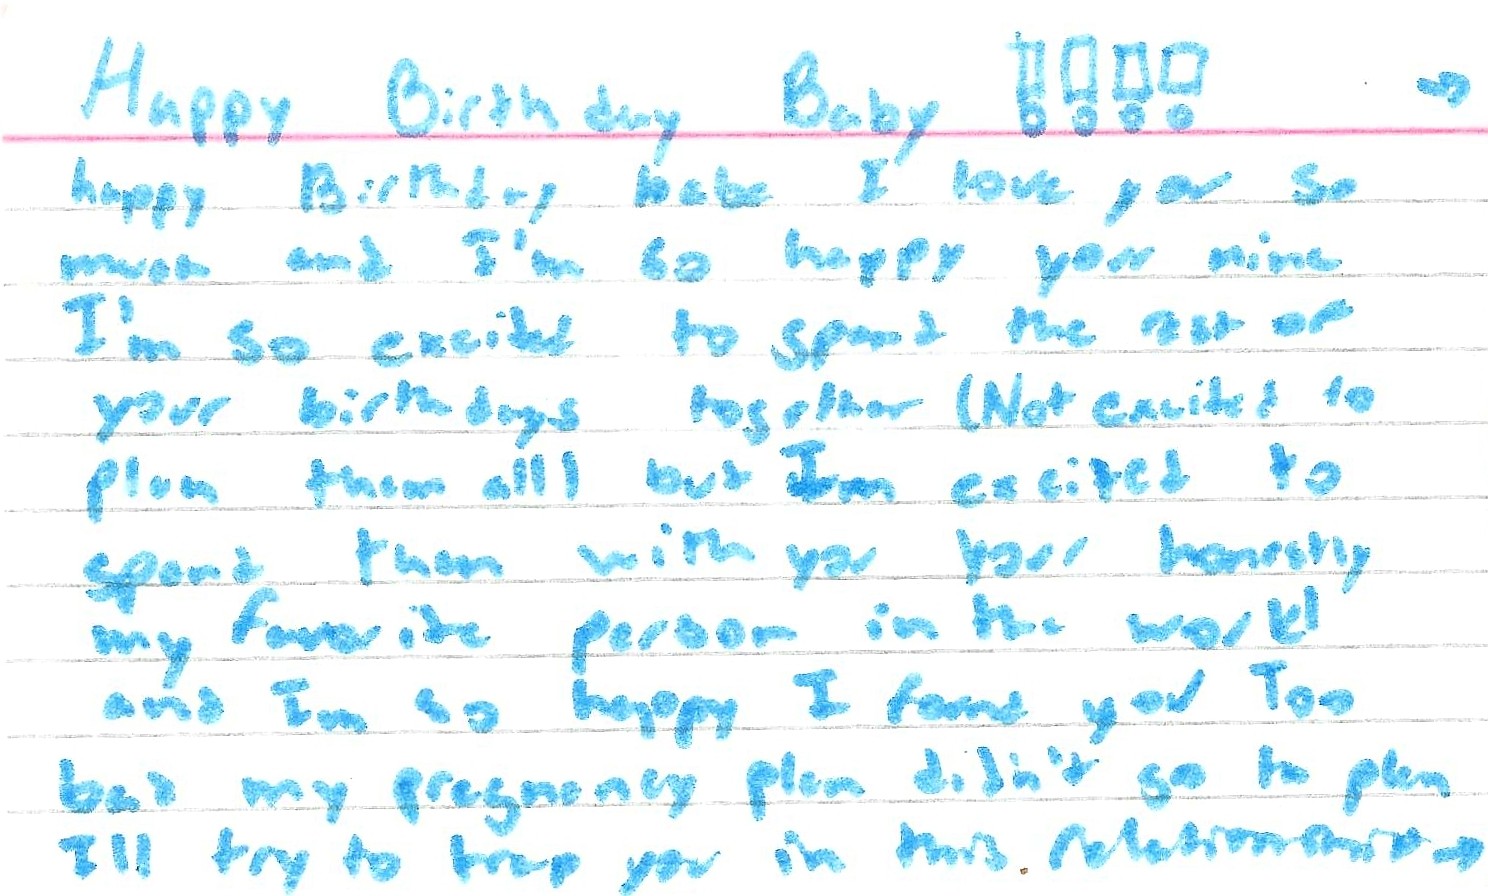 Happy Birthday Baby !!!! →
happy Birthday babe I love you so
much and I'm so happy your mine
I'm so excited to spend the rest of
your birthdays together (Not excited to
plan them all) but Im excited to
spend them with you your honestly
my favorite person in the world
and Im so happy I found you Too
bad my pregnancy plan didin't go to plan
I'll try to trap you in this relationship →